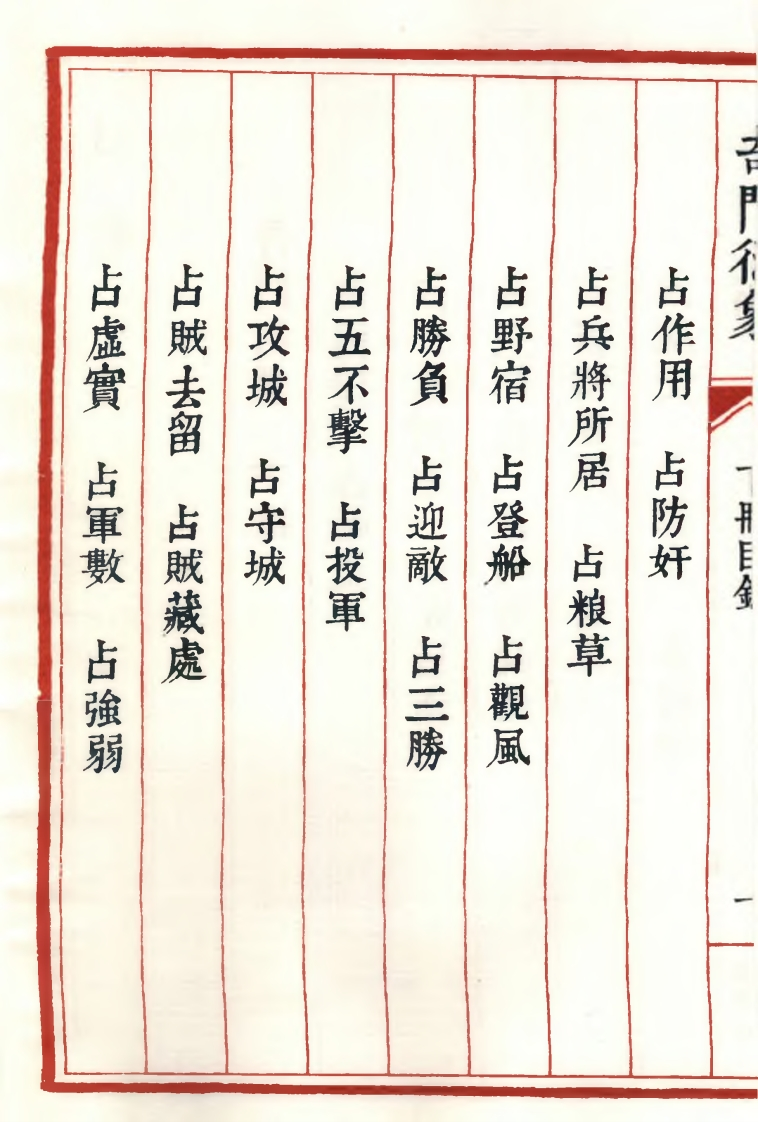 占作用　占防奸
占兵將所居　占粮草
占野宿　占登船　占觀風
占勝負　占迎敵　占三勝
占五不擊　占投軍
占攻城　占守城
占賊去留　占賊藏處
占虛實　占軍數　占強弱